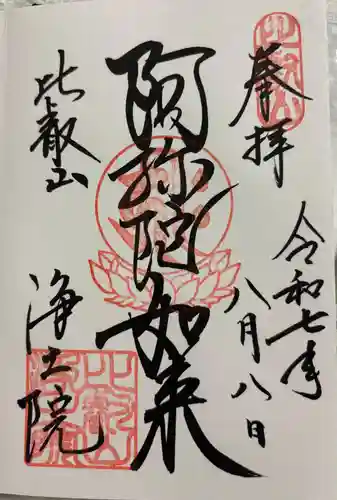 奉拝
令和七年
八月八日
阿弥陀如来
比叡山
浄土院